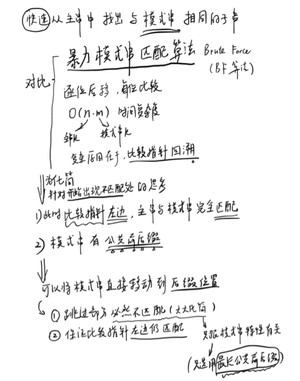 快速从主串中找出与模式串相同的子串
对比
暴力模式串匹配算法 Brute Force
(BF算法)
逐位后移,每位比较
O(n·m) 时间复杂度
主串长 模式串长
完全原因在于,比较指针回溯
优化简
针对开始出现不匹配处的思考
1) 此时比较指针左边,主串与模式串完全匹配
2) 模式串有公共前后缀
可以将模式串直接移动到后缀位置
① 跳过部分必然不匹配(大大化简)
② 保证比较指针左边仍匹配
只跟模式串特性有关
(只选用最长公共前后缀)